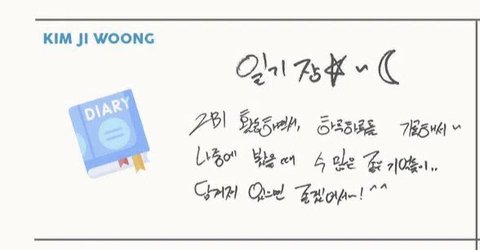 KIM JI WOONG
일기장☆~☾
DIARY
ZB1 활동하면서, 하루하루를 기록해서~
나중에 봤을 때 수 많은 좋은 기억들이..
담겨져 있으면 좋겠어서~! ^^